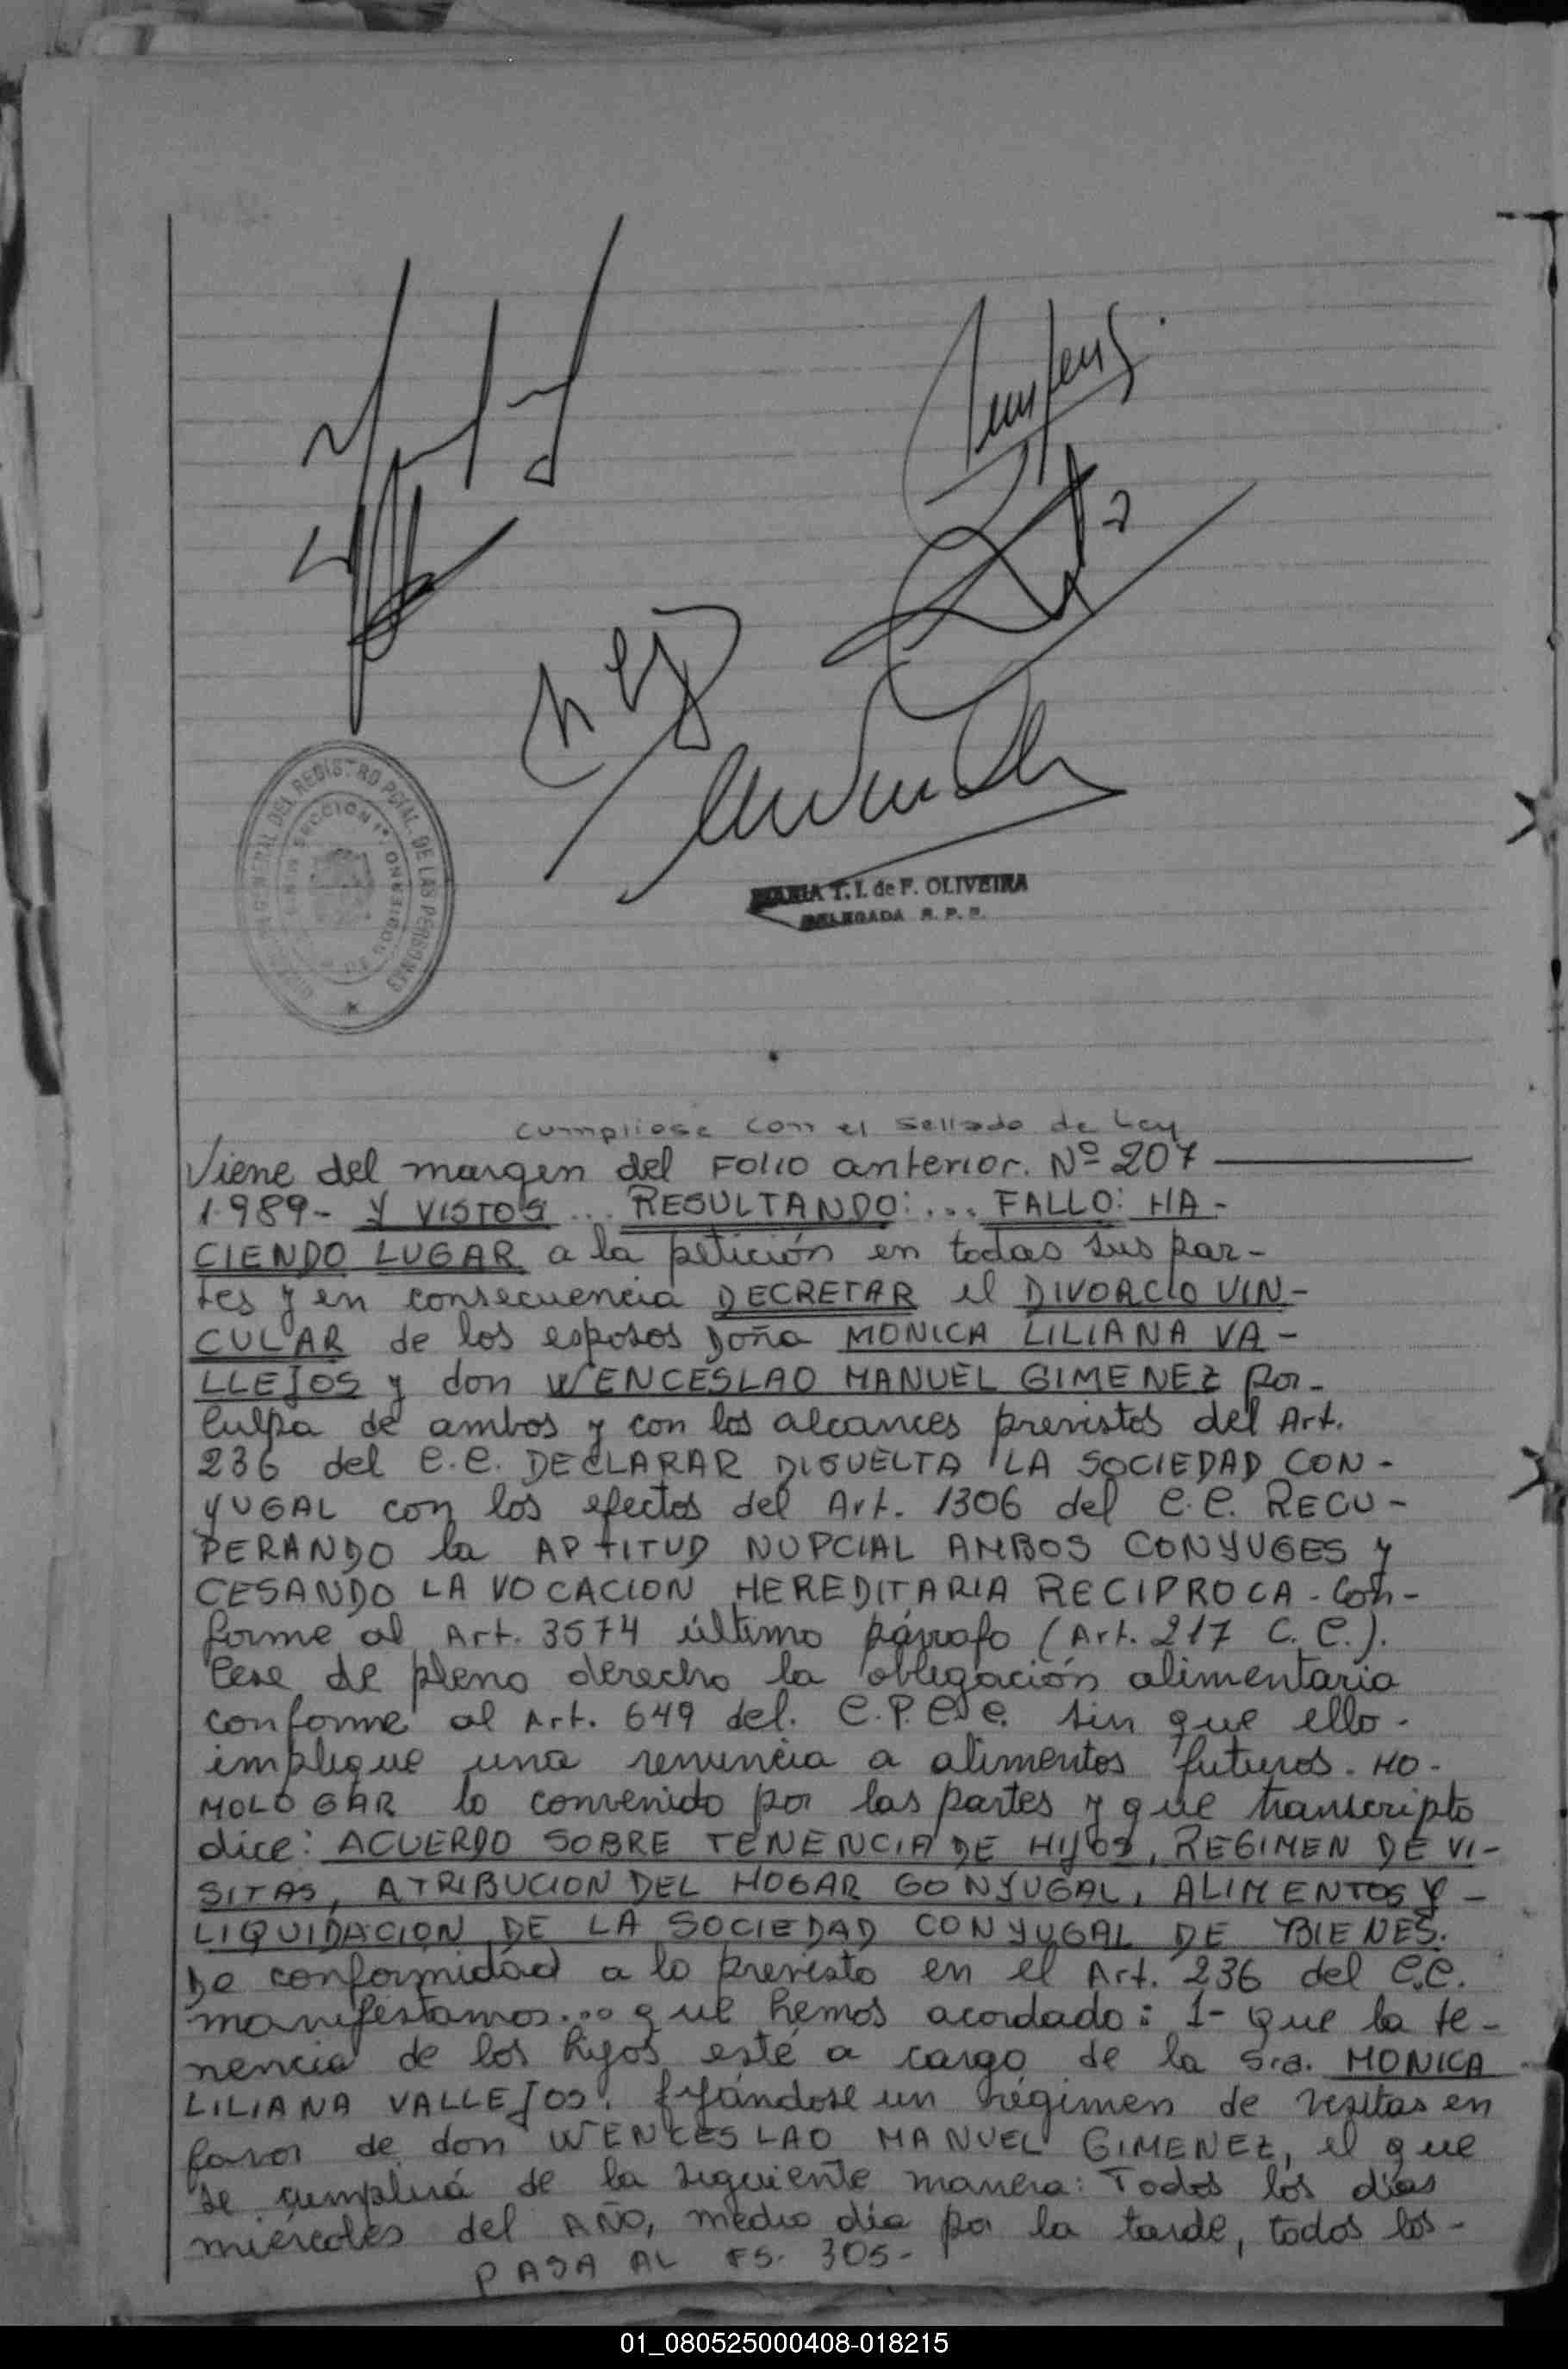 DEL REGISTRO PCIAL. DE LAS PERSONAS
SECCION 1ª
MARIA T. I. de F. OLIVEIRA
DELEGADA R. P. P.
Cumpliose con el sellado de Ley
Viene del margen del Folio anterior. Nº 207
1.989- Y VISTOS... RESULTANDO:... FALLO: HA-
CIENDO LUGAR a la petición en todas sus par-
tes y en consecuencia DECRETAR el DIVORCIO VIN-
CULAR de los esposos Doña MONICA LILIANA VA-
LLEJOS y don WENCESLAO MANUEL GIMENEZ por-
culpa de ambos y con los alcances previstos del Art.
236 del C.C. DECLARAR DISUELTA LA SOCIEDAD CON-
YUGAL con los efectos del Art. 1306 del C.C. RECU-
PERANDO la APTITUD NUPCIAL AMBOS CONYUGES y
CESANDO LA VOCACION HEREDITARIA RECIPROCA - Con-
forme al Art. 3574 último párrafo (Art. 217 C.C.).
Cese de pleno derecho la obligación alimentaria
conforme al Art. 649 del. C.P.C.C. sin que ello-
implique una renuncia a alimentos futuros. HO-
MOLOGAR lo convenido por las partes y que transcripto
dice: ACUERDO SOBRE TENENCIA DE HIJOS, REGIMEN DE VI-
SITAS, ATRIBUCION DEL HOGAR CONYUGAL, ALIMENTOS Y -
LIQUIDACION DE LA SOCIEDAD CONYUGAL DE BIENES.
De conformidad a lo previsto en el Art. 236 del C.C.
manifestamos... que hemos acordado: 1- Que la te-
nencia de los hijos esté a cargo de la Sra. MONICA
LILIANA VALLEJOS. fijándose un régimen de visitas en
favor de don WENCESLAO MANUEL GIMENEZ, el que
se cumplirá de la siguiente manera: Todos los días
miércoles del AÑO, medio día por la tarde, todos los-
PASA AL FS. 305-
01_080525000408-018215